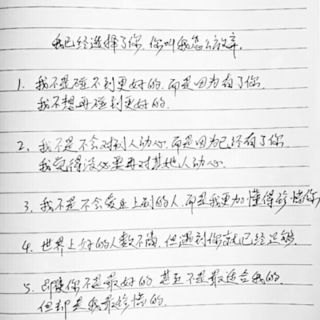 我已经选择了你,你叫我怎么放弃.
1. 我不是碰不到更好的.而是因为有了你.
我不想再碰到更好的.
2、我不是不会对别人动心.而是因为已经有了你
我觉得没必要再对其她人动心.
3、我不是不会爱上别的人,而是我更加懂得珍惜你
4. 世界上好的人数不清,但遇到你就已经足够.
5. 即使你不是最好的 甚至不是最适合我的.
但却是我最珍惜的.